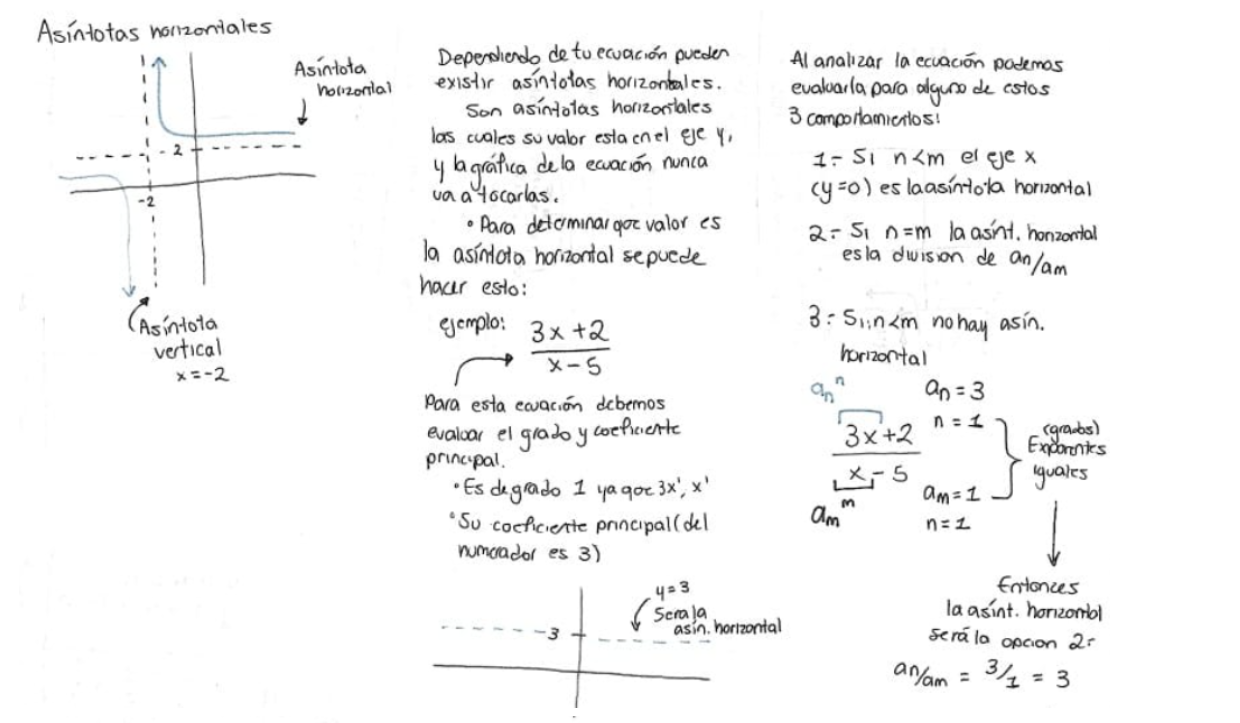 Asíntotas horizontales
Asíntota
horizontal
2
-2
Asíntota
vertical
x = -2
Dependiendo de tu ecuación pueden
existir asíntotas horizontales.
Son asíntotas horizontales
las cuales su valor esta en el eje y,
y la gráfica de la ecuación nunca
va a tocarlas.
• Para determinar que valor es
la asíntota horizontal se puede
hacer esto:
ejemplo: 3x + 2
x - 5
Para esta ecuación debemos
evaluar el grado y coeficiente
principal.
• Es de grado 1 ya que 3x¹, x¹
• Su coeficiente principal (del
numerador es 3)
y = 3
Sera la
asín. horizontal
3
Al analizar la ecuación podemos
evaluarla para alguno de estos
3 comportamientos:
1- Si n<m el eje x
(y=0) es la asíntota horizontal
2- Si n=m la asínt. horizontal
es la division de an/am
3- Si n<m no hay asín.
horizontal
aₙⁿ
3x+2
x - 5
aₘᵐ
aₙ = 3
n = 1
aₘ = 1
n = 1
(grados)
Exponentes
iguales
Entonces
la asínt. horizontal
será la opcion 2-
an/am = 3/1 = 3